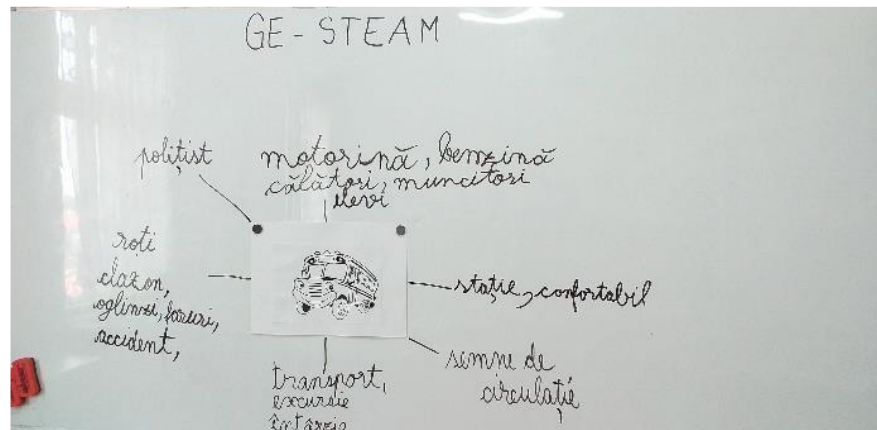 GE - STEAM
polițist
motorină, benzină
călători, muncitori
elevi
roți
claxon,
oglinzi, faruri,
accident,
stație, confortabil
semne de
circulație
transport,
excursie
întârzie